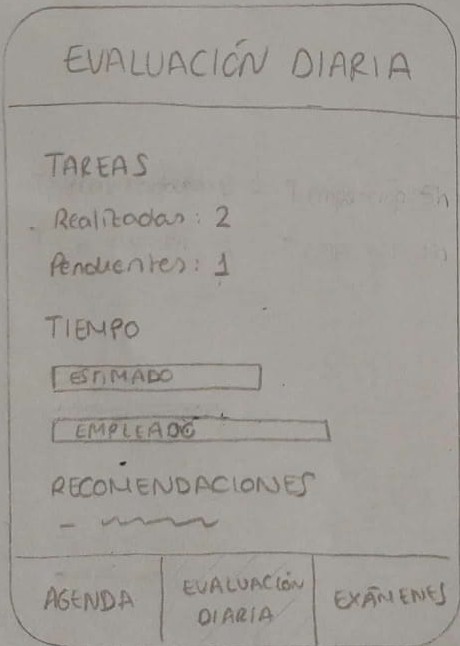 EVALUACIÓN DIARIA
TAREAS
Realizadas: 2
Pendientes: 1
TIEMPO
ESTIMADO
EMPLEADO
RECOMENDACIONES
AGENDA
EVALUACIÓN
DIARIA
EXÁMENES